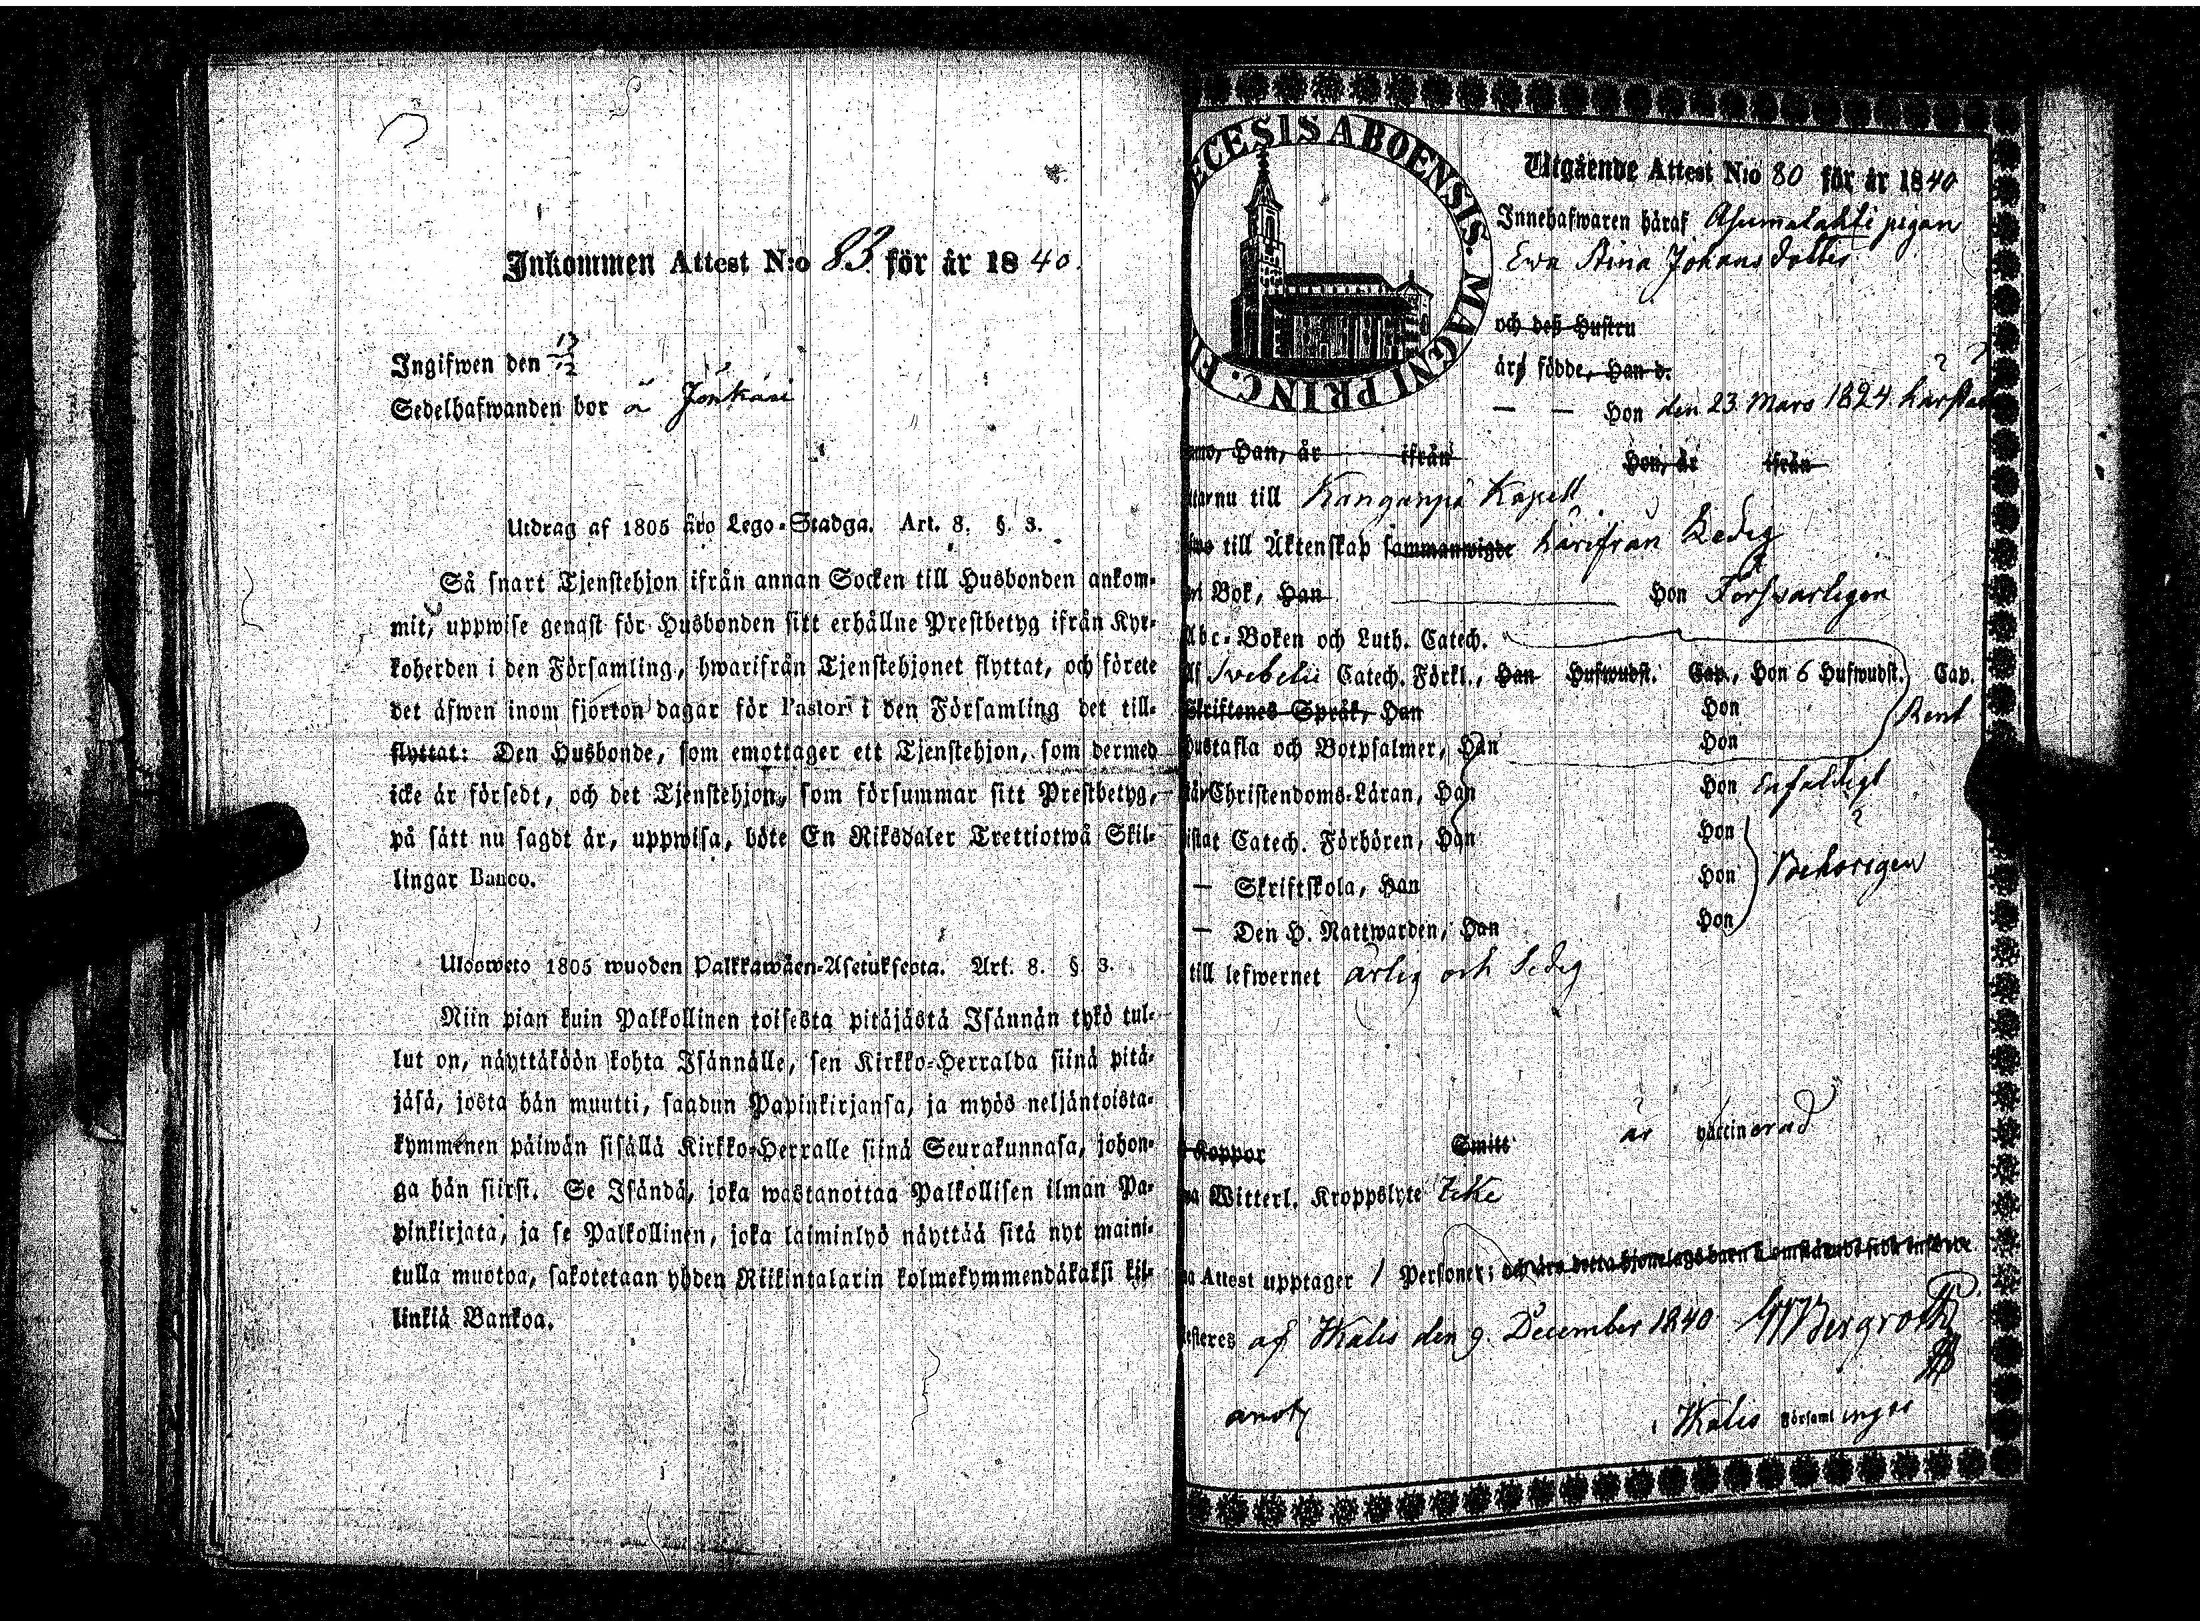 Inkommen Attest N:o 83 för år 1840.
Ingifwen den 13/12
Sedelhafwanden bor å Jönkäri
Utdrag af 1805 åro Lego-Stadga. Art. 8. §. 3.
Så snart Tjenstehjon ifrån annan Socken till Husbonden ankom-
mit, uppwise genast för Husbonden sitt erhållne Prestbetyg ifrån Kyr-
koherden i den Församling, hwarifrån Tjenstehjonet flyttat, och förete
det äfwen inom fjorton dagar för Pastor i den Församling det till-
flyttat: Den Husbonde, som emottager ett Tjenstehjon, som dermed
icke är försedt, och det Tjenstehjon, som försummar sitt Prestbetyg,
på sätt nu sagdt är, uppwisa, böte En Riksdaler Trettiotwå Skil-
lingar Banco.
Ulosweto 1805 wuoden Palkkawäen-Asetuksesta. Art. 8. §. 3.
Niin pian kuin Palkollinen toisesta pitäjästä Isännän tykö tul-
lut on, näyttäköön kohta Isännälle, sen Kirkko-Herralda siinä pitä-
jäsä, josta hän muutti, saadun Papinkirjansa, ja myös neljäntoista-
kymmenen päiwän sisällä Kirkko-Herralle siinä Seurakunnasa, johon-
ga hän siirsi. Se Isändä, joka wastanottaa Palkollisen ilman Pa-
pinkirjata, ja se Palkollinen, joka laiminlyö näyttää sitä nyt maini-
tulla muotoa, sakotetaan yhden Riikintalarin kolmekymmendäkaksi kil-
linkiä Bankoa.
ECESIS ABOENSIS. MAGNI PRINC. FI
Utgående Attest N:o 80 för år 1840
Innehafwaren häraf Asumalahti pigan
Ewa Stina Johansdotter
och deß Hustru
är födde, Han d.
— — Hon den 23 Mars 1824 härstäd
Han, är ifrån Hon, är ifrån
nu till Kanganpä Kapell
till Äktenskap sammanwigde härifrån Ledig
Bok, Han Hon Försvarligen
Abc-Boken och Luth. Catech.
Svebelii Catech. Förkl., Han Hufwudst. Cap., Hon 6 Hufwudst. Cap.
Skriftenes Språk, Han Hon Rent
Hustafla och Botpsalmer, Han Hon
Christendoms-Läran, Han Hon Enfaldigt
Catech. Förhören, Han Hon
— Skriftskola, Han Hon Behörigen
— Den H. Nattwarden, Han Hon
till lefwernet ärlig och Sedig
Koppor Smitt är vaccinerad
Witterl. Kroppslyte Icke
Attest upptager 1 Personer; och äro detta hjonelags barn
af Ikalis den 9. December 1840 Bergroth
i Ikalis Församl inger